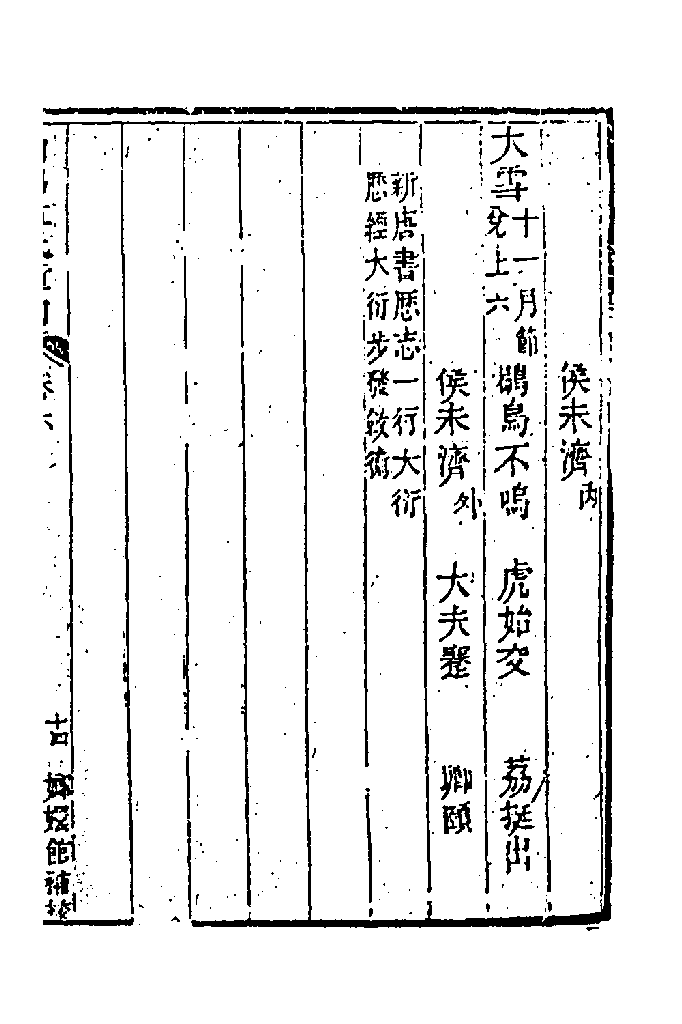 侯未濟內
大雪十一月節兌上六 鶡鳥不鳴 虎始交 荔挺出
侯未濟外 大夫蹇 卿頤
新唐書厯志一行大衍
厯經大衍步發斂術
卷六
十四 嫏嬛館補校